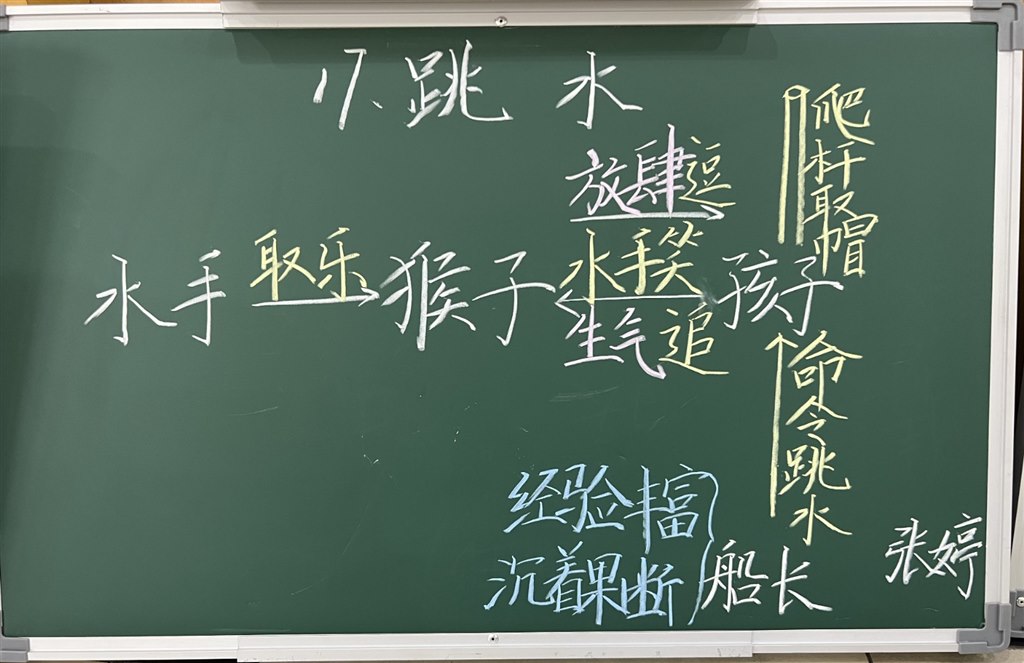 17、跳水
放肆逗
爬杆取帽
水手 取乐 猴子 水手笑 孩子
生气追
命令跳水
经验丰富
沉着果断
船长
张婷